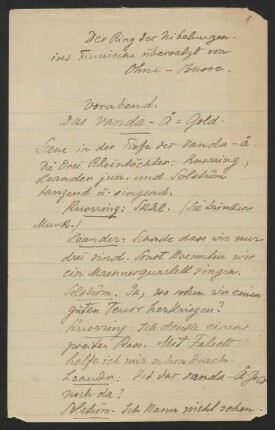 1
Der Ring der Nibelungen.
ins Finnische übersetzt von
Ohne-
Vorabend.
Das Vanda-Å-Gold.
Scene in der Tiefe der Vanda-Å.
Die Drei Rheintöchter: Knorring,
Leander jun. und Solström
tanzend u. singend.
Knorring: Skål. (Sie trinken
Munk.)
Leander: Schade dass wir nur
drei sind. Sonst koennten wir
ein Maennerquartett singen.
Solström. Ja, wo sollen wir einen
guten Tenor herkriegen?
Knorring: Ich denke einen
zweiten Bass. Mit Falsett
helfe ich mir schon durch.
Leander: Ist das Vanda-Å-Gold
noch da?
Solström. Ich kann nicht sehen.